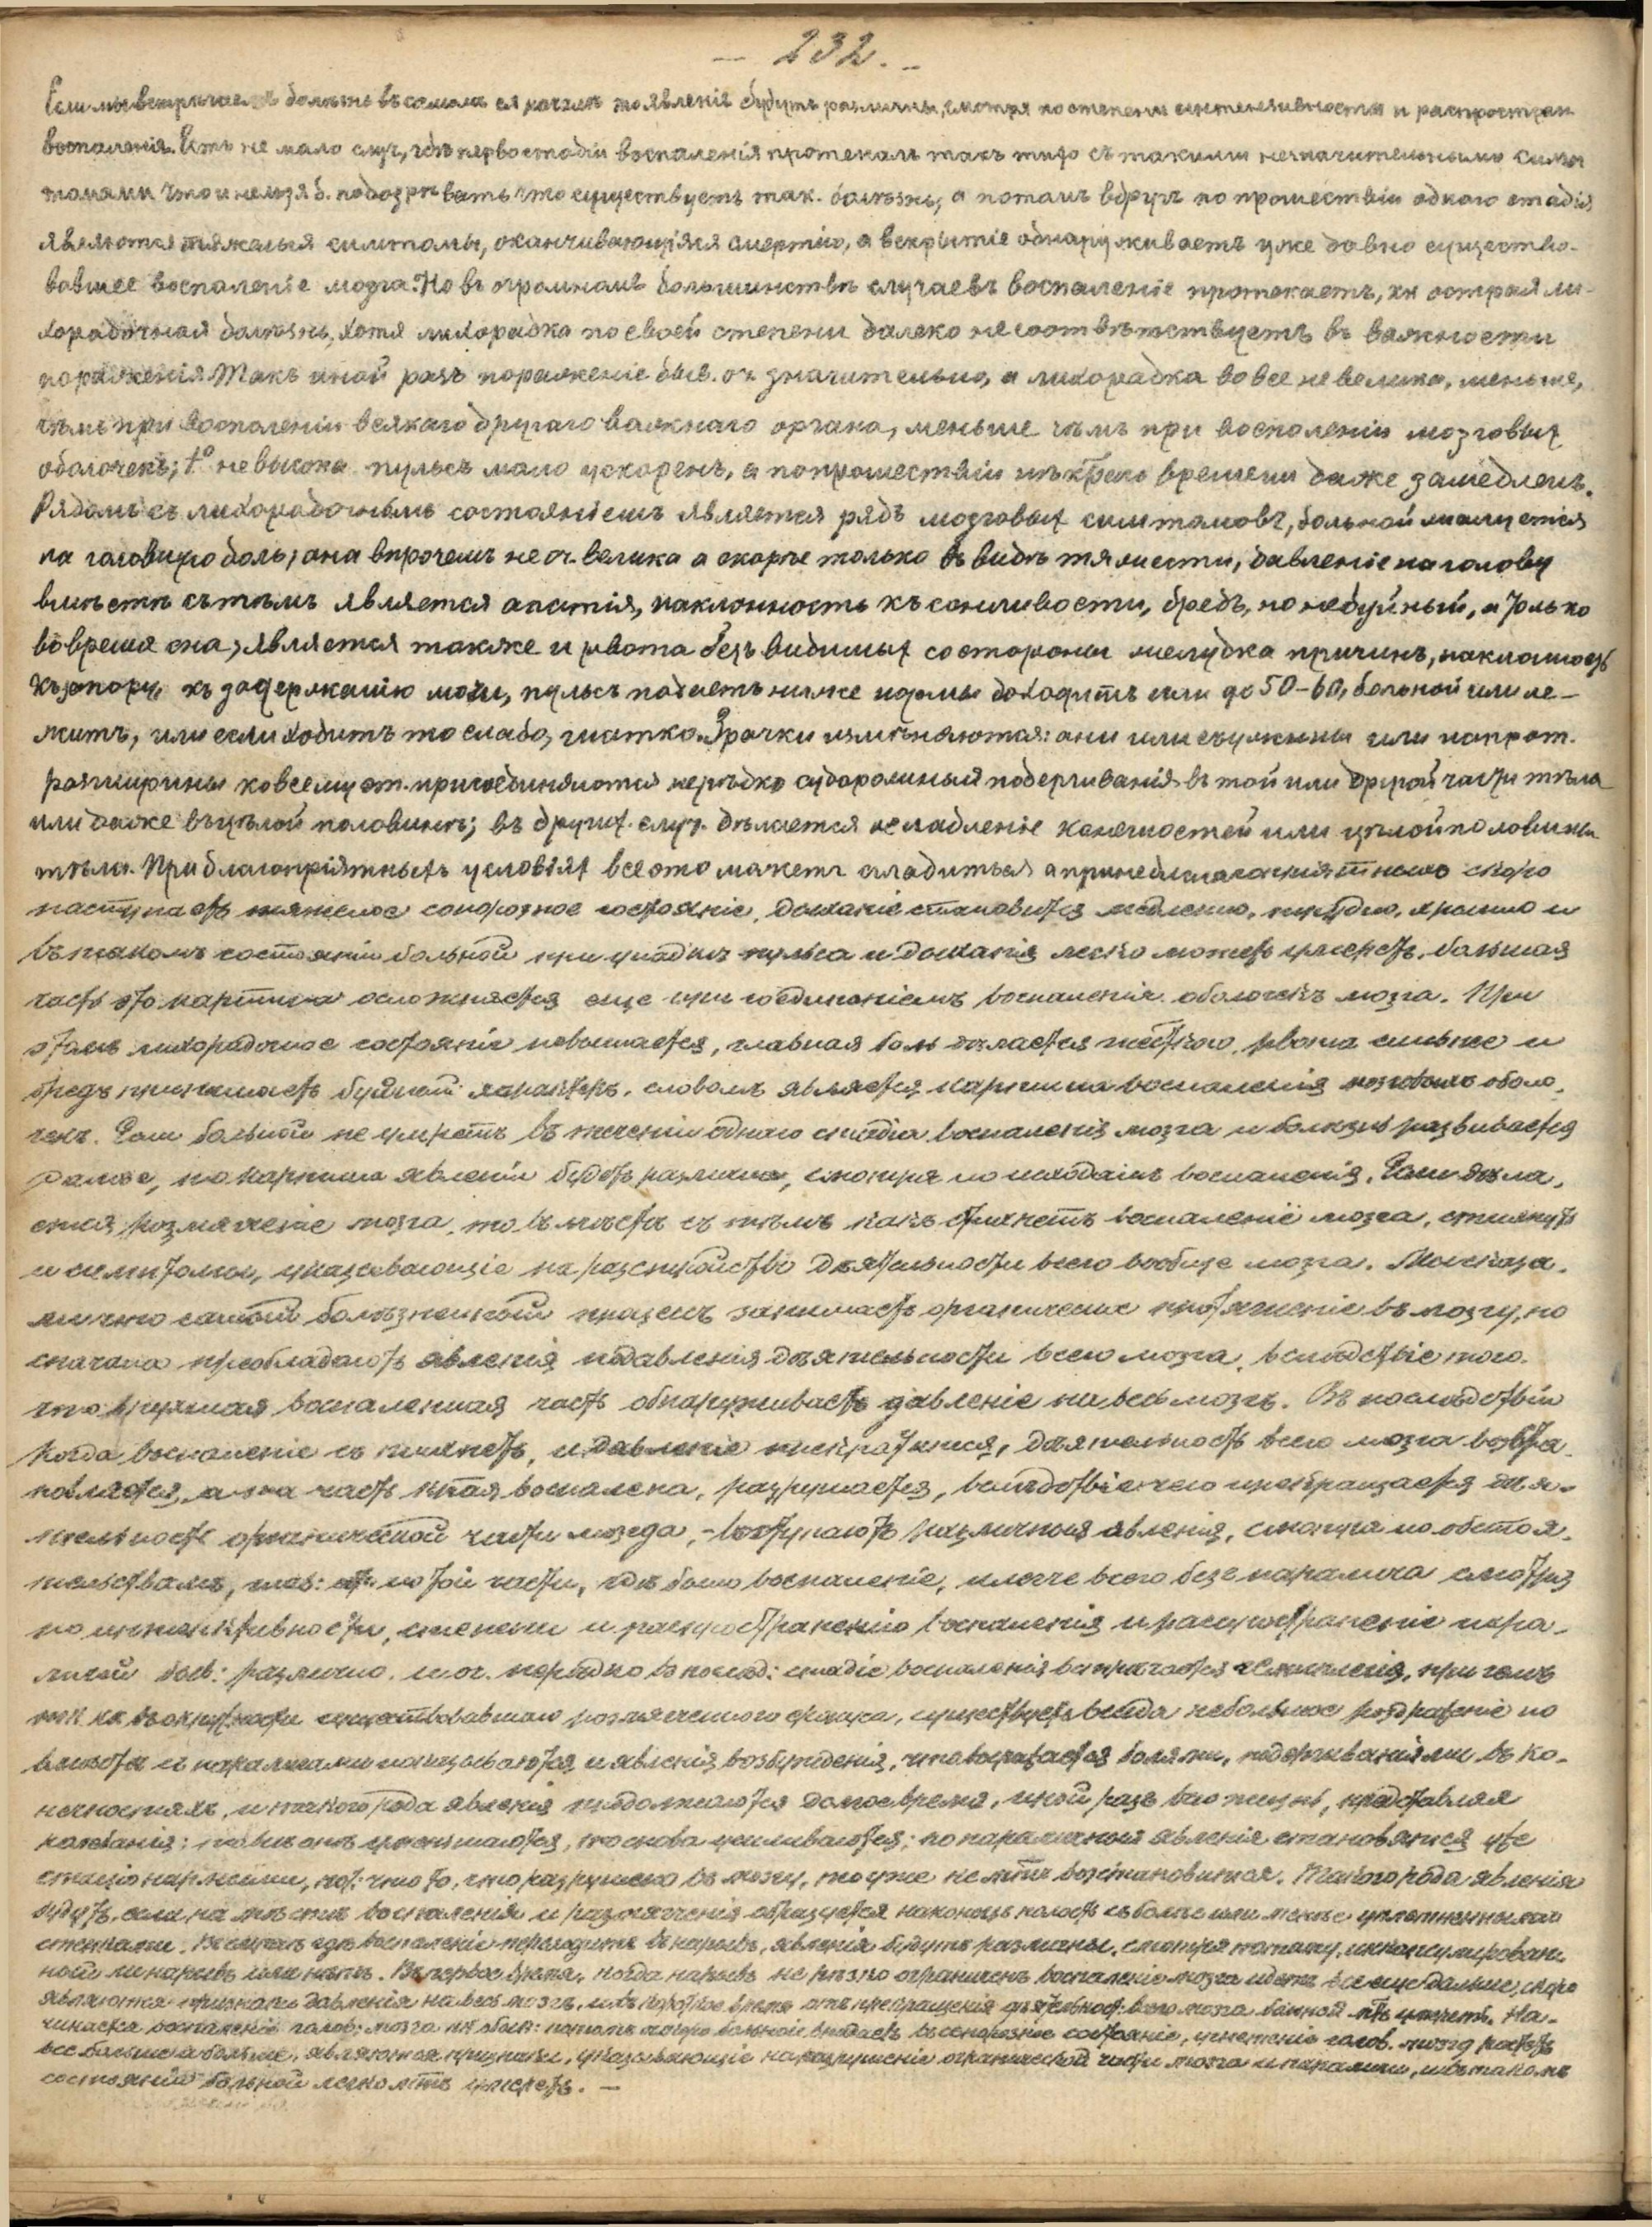 — 232. —
Если мы встрѣчаемъ болѣзнь въ самомъ ея началѣ то явленія будутъ различны, смотря по степени интенсивности и распростран
воспаленія. Есть не мало случ, гдѣ первостадіи воспаленія протекалъ такъ тихо съ такими незначительными симп
томами что и нельзя б. подозрѣвать что существуетъ так. болѣзнь, а потомъ вдругъ по прошествіи однаго стадія
являются тяжелыя симтомы, оканчивающіяся смертію, а вскрытіе обнаруживаетъ уже давно существо-
вавшее воспаленіе мозга. Но въ огромномъ большинствѣ случаевъ воспаленіе протекаетъ, кк острая ли-
хорадочная болѣзнь, хотя лихорадка по своей степени далеко не соотвѣтствуетъ въ важности
пораженія. Такъ иной разъ пораженіе быв. оч. значительно, а лихорадка вовсе не велика, меньше,
чѣмъ при воспаленіи всякаго другаго важнаго органа, меньше чѣмъ при воспаленіи мозговых
оболочекъ; t° не высока пульсъ мало ускоренъ, а по прошествіи нѣктраго времени даже замедленъ.
Рядомъ съ лихорадочнымъ состояніемъ является рядъ мозговых симтомовъ, больной жалуется
на головную боль, она впрочемъ не оч. велика а скорѣе только въ видѣ тяжести, давленіе на голову
вмѣстѣ съ тѣмъ является апатія, наклонность къ сонливости, бредъ, но не буйный, а только
во время сна; является также и рвота безъ видимых со стороны желудка причинъ, наклонность
къ запору, къ задержанію мочи, пульсъ падаетъ ниже нормы доходитъ или до 50-60, больной или ле-
житъ, или если ходитъ то слабо, шатко. Зрачки измѣняются: они или съужены или напрот.
разширины ко всему эт. присоединяются нерѣдко судорожныя подергиванія въ той или другой части тѣла
или даже въ цѣлой половинѣ; въ других. случ. дѣлается ослабленіе конечностей или цѣлой половины
тѣла. При благопріятныхъ условіях все это можетъ сгладиться а при неблагопріятныхъ скоро
наступаетъ тяжелое сопорозное состояніе, дыханіе становится медленно, трудно, хрипло и
въ такомъ состояніи больной при упадкѣ пульса и дыханія легко можетъ умереть. большая
часть эта картина осложняется еще присоединеніемъ воспаленія оболочекъ мозга. При
этомъ лихорадочное состояніе повышается, главная боль дѣлается жесткою, рвота сильнѣе и
бредъ принимаетъ буйный характеръ. словомъ является картина воспаленія мозговыхъ оболо-
чекъ. Если больной не умретъ въ теченіи однаго стадіа воспаленія мозга и болѣзнь развивается
далѣе, то картина явленій будетъ различна, смотря по исходамъ воспаленія. Если дѣла-
ется размягченіе мозга, то вмѣстѣ съ тѣмъ какъ стихнетъ воспаленіе мозга, стихнутъ
и симптомы, указывающіе на разстройство дѣятельности всего вообще мозга. Мы сказа-
ли что самый болѣзненный процесъ занимаетъ органическое протяженіе въ мозгу, но
сначала преобладаютъ явленія подавленія дѣятельности всего мозга. вслѣдствіе того
что припухшая воспаленная часть обнаруживаетъ давленіе на весь мозгъ. Въ послѣдствіи
когда воспаленіе стихнетъ, и давленіе прекратится, дѣятельность всего мозга возстра-
новляется, а та часть кттая воспалена, разрушается, вслѣдствіе чего прекращается дѣя-
тельность органической части мозга, - выступаютъ различныя явленія, смотря по обстоя-
тельствамъ, глав: по той части, гдѣ было воспаленіе, и легче всего безъ паралича смотря
по интенктивности, степени и распространенію воспаленія и распространеніе пара-
личей быв: различно. и оч. нерѣдко въ послѣд: стадіе воспаленія встрѣчается геминлегія, при чемъ
тк кк въ окружности существовавшаго размягченнаго фокуса, существуетъ всегда небольшое раздраженіе то
вмѣстѣ съ параличами показываются и явленія возбужденія, что выражается болями, подергиваніями въ ко-
нечностяхъ, и такого рода явленія продолжаются долгое время, иной разъ всю жизнь, представляя
колебанія: то они уменьшаются, то снова усиливаются; но параличныя явленія становятся уже
стаціонарными, пот. что то, что разрушено въ мозгу, то уже не мтъ возстановиться. Такого рода явленія
будутъ, если на мѣстѣ воспаленія и размягченія образуется наконецъ полость съ болѣе или менѣе уплотненными
стенками. Въ случаѣ гдѣ воспаленіе переходитъ въ нарывъ, явленія будутъ различны, смотря потому, инкапсулирован-
ный ли нарывъ или нѣтъ. Въ первое время, когда нарывъ не рѣзко ограниченъ воспаленіе мозга идетъ все еще дальше, скоро
являются признаки давленія на весь мозгъ, и въ короткое время отъ прекращенія дѣятельност: всего мозга больной мтъ умереть. На-
чинается воспаленіе голов: мозга кк обык: потомъ скоро больной впадаетъ въ сопорозное состояніе, угнетеніе голов. мозга растетъ
все больше и больше, являются признаки, указывающіе на разрушеніе органической части мозга и параличи, и въ такомъ
состояніи больной легко мтъ умереть. —